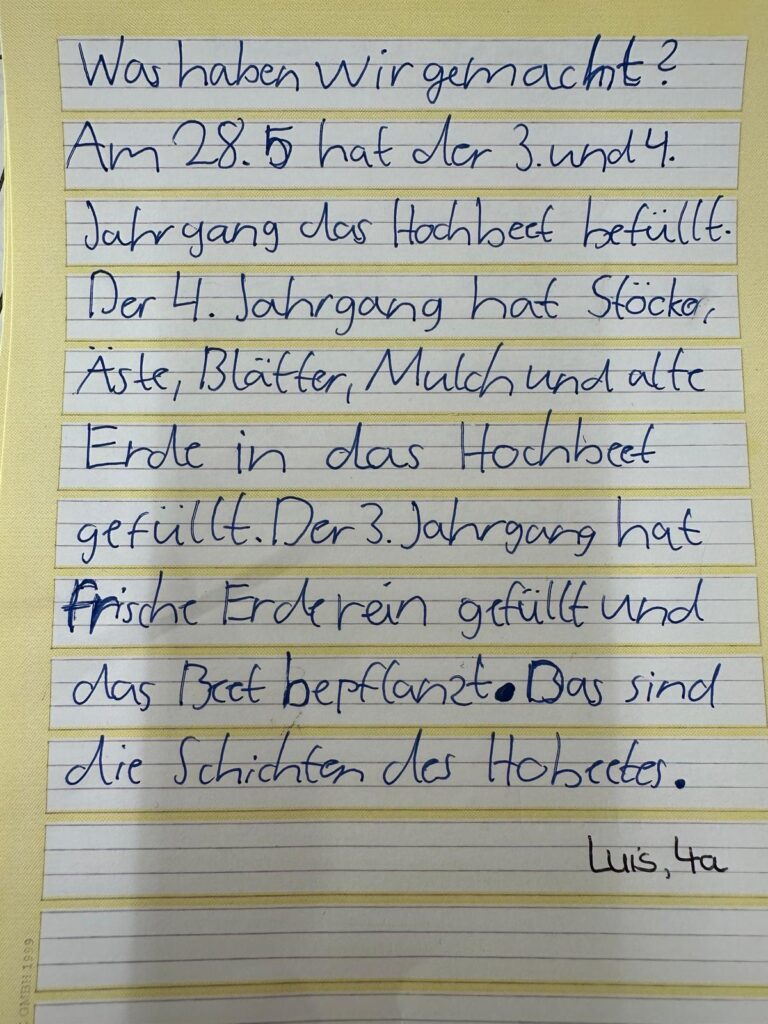 Was haben wir gemacht?
Am 28.5 hat der 3. und 4.
Jahrgang das Hochbeet befüllt.
Der 4. Jahrgang hat Stöcke,
Äste, Blätter, Mulch und alte
Erde in das Hochbeet
gefüllt. Der 3. Jahrgang hat
frische Erde rein gefüllt und
das Beet bepflanzt. Das sind
die Schichten des Hobeetes.
Luis, 4a
GMBH 1999